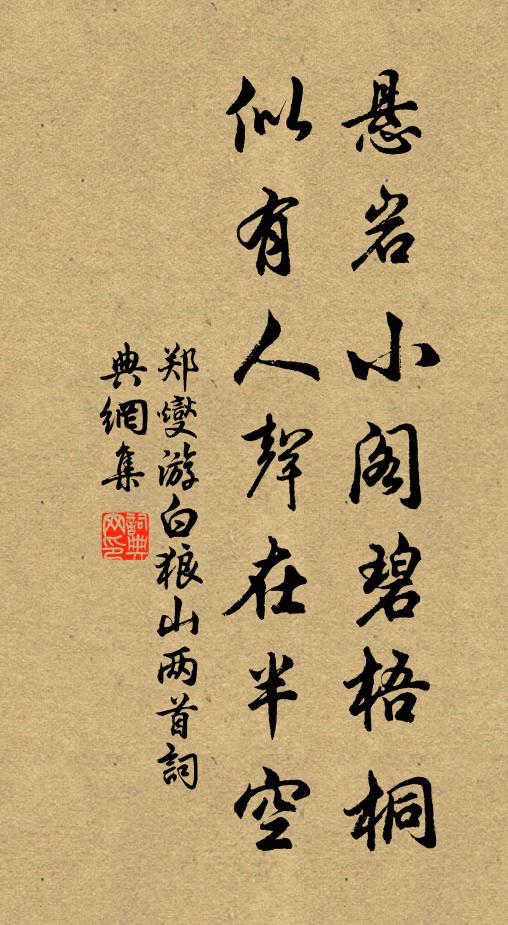 悬岩小阁碧梧桐
似有人聲在半空
郑燮游白狼山两首詞
典網集
詞典
网印